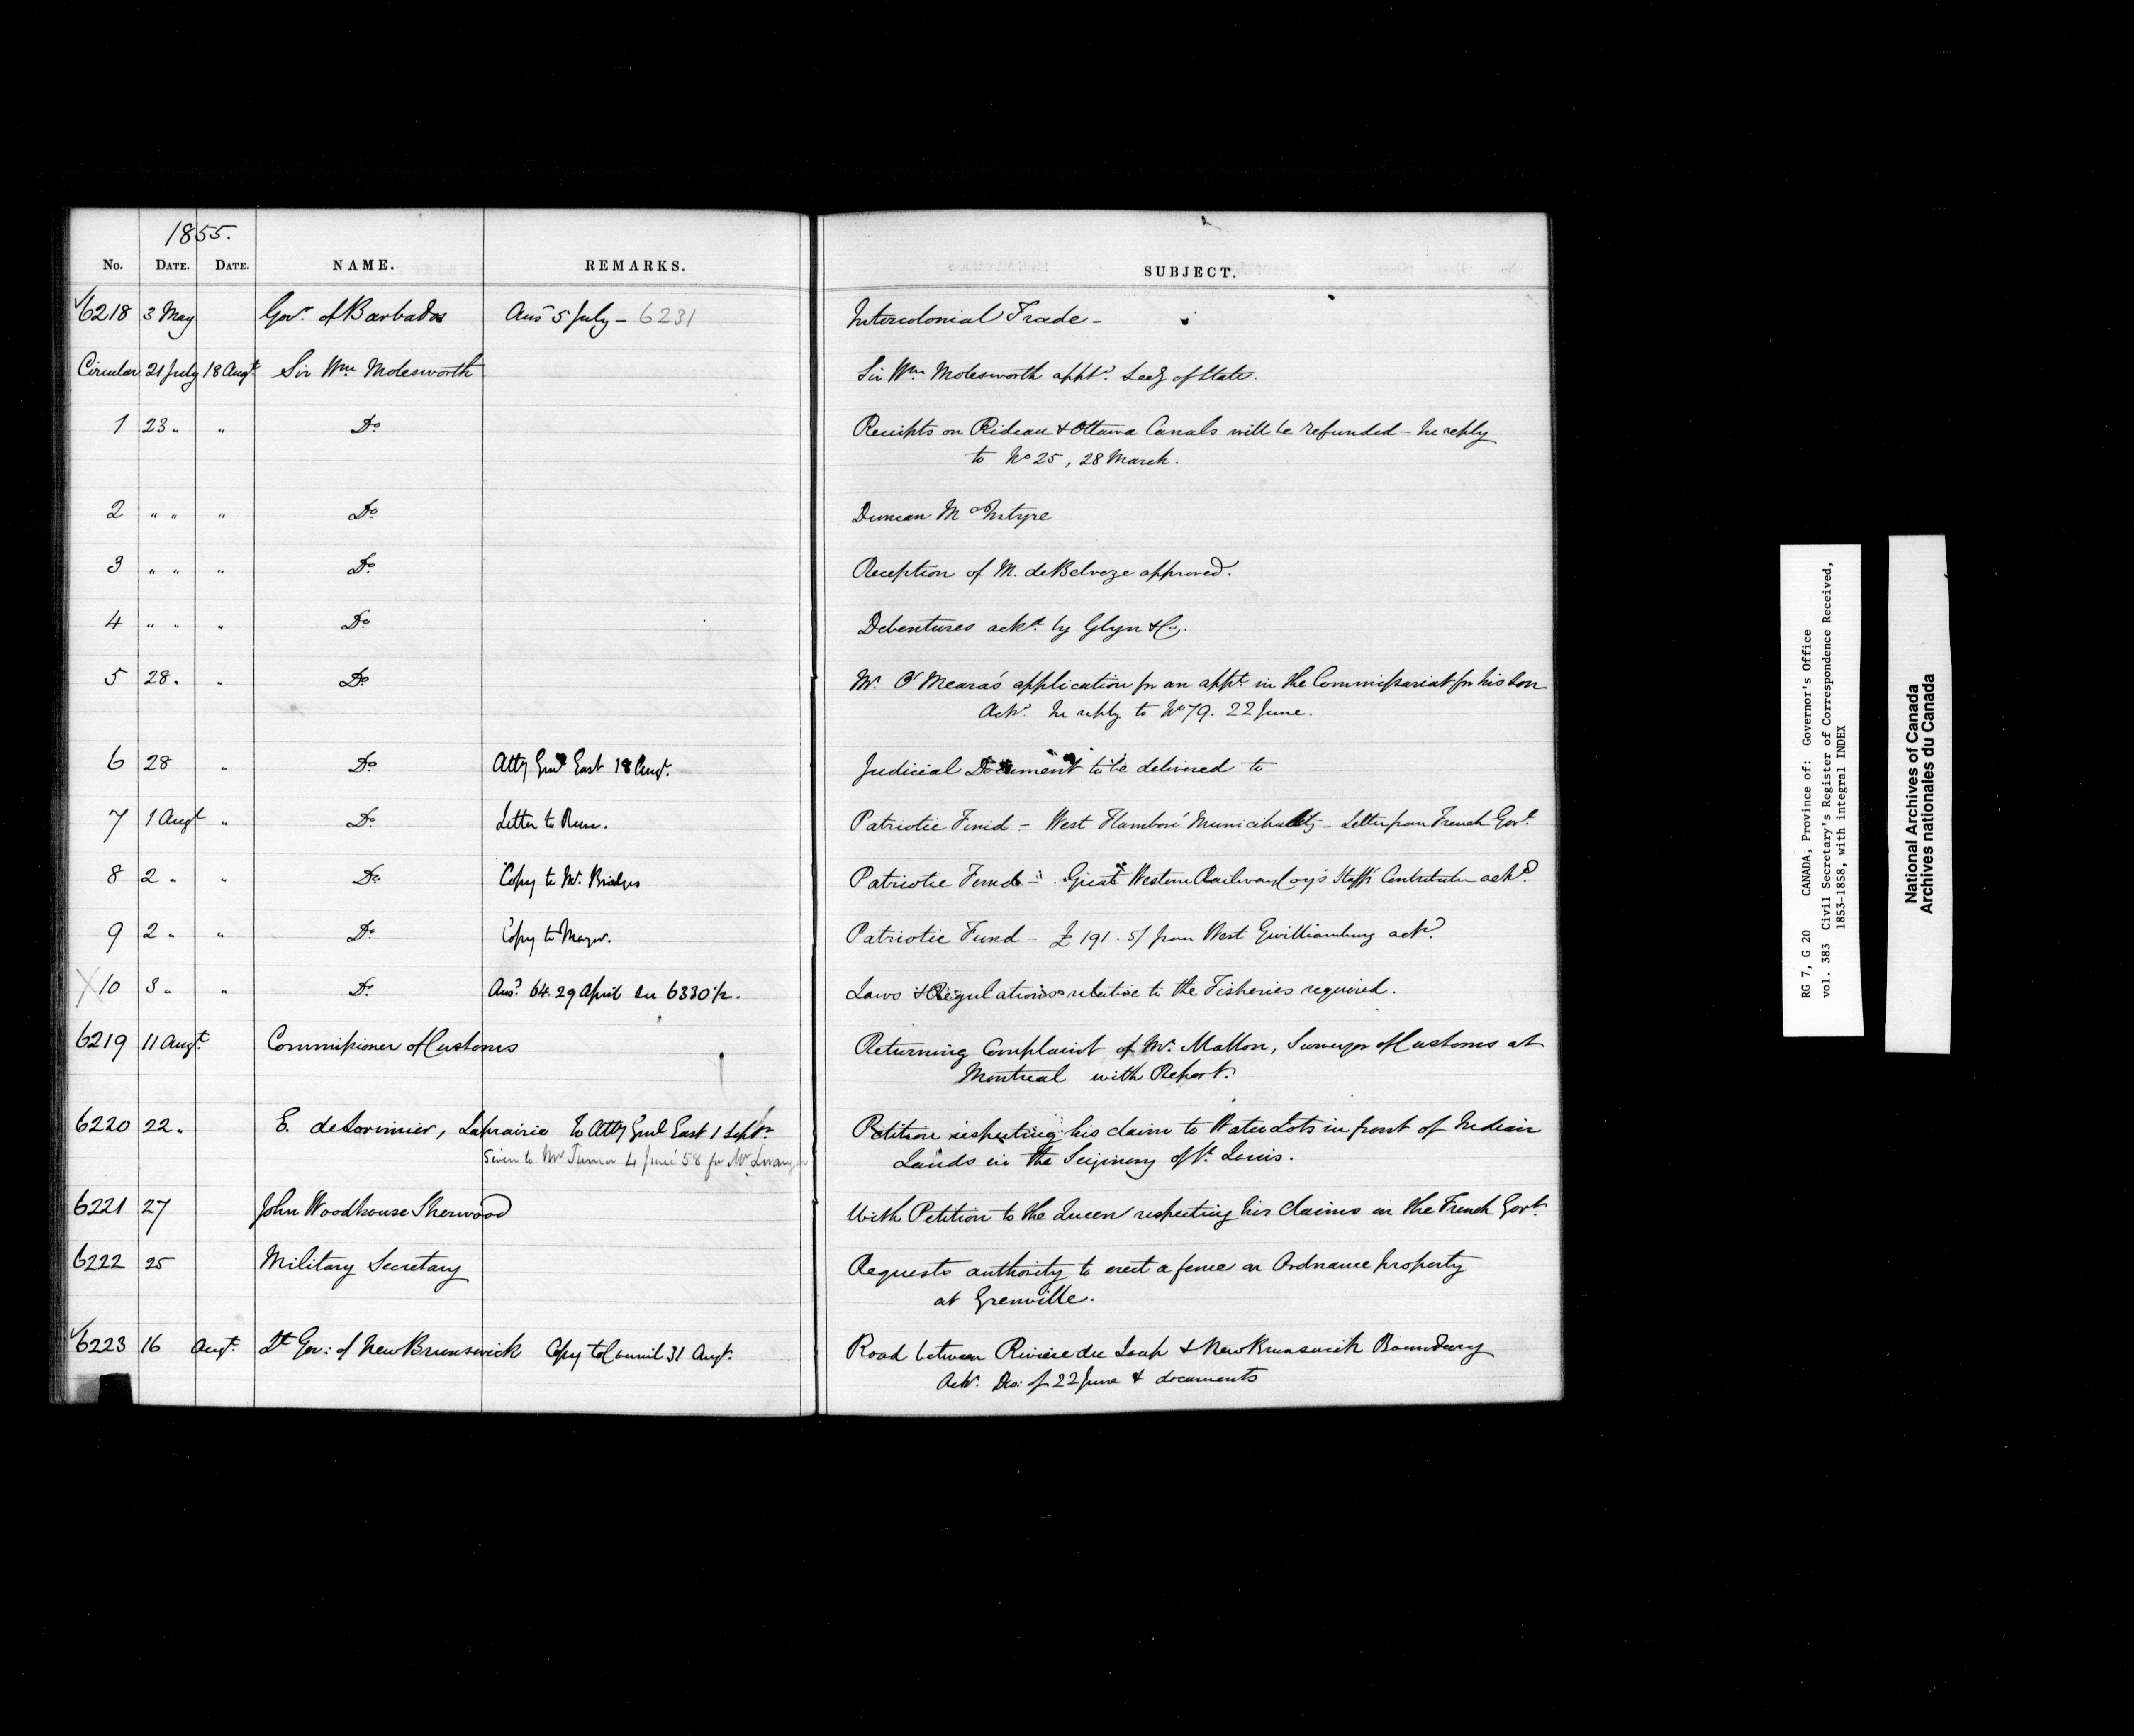 1855.
No. DATE. DATE. NAME. REMARKS. SUBJECT.
6218 3 May Govr. of Barbados Ans 5 July - 6231 Intercolonial Trade -
Circular 21 July 18 Augt. Sir Wm Molesworth Sir Wm Molesworth apptd. Secy of State.
1 23 " " Do Receipts on Rideau & Ottawa Canals will be refunded - In reply
to No 25, 28 March.
2 " " " Do Duncan McIntyre
3 " " " Do Reception of M. de Belveze approved.
4 " " " Do Debentures ackd. by Glyn & Co.
5 28 " " Do Mr. O'Meara's application for an appt. in the Commissariat for his son
Ackd. In reply to No 79. 22 June.
6 28 " Do Atty Genl East 18 Augt. Judicial Document to be delivered to
7 1 Augt " Do Letter to Reeve. Patriotic Fund - West Flamboro' Municipality - Letter from French Govt.
8 2 " " Do Copy to Mr. Bridges Patriotic Fund - Great Western Railway Coy's Staff's Contributn ackd.
9 2 " " Do Copy to Mayor. Patriotic Fund - £191.5/ from West Gwillimbury ackd.
X 10 3 " " Do Ansd. 64. 29 April See 6330 1/2. Laws & Regulations relative to the Fisheries required.
6219 11 Augt. Commissioner of Customs Returning Complaint of Mr. Matton, Surveyor of Customs at
Montreal with Report.
6220 22 " E. deLorimier, Laprairie To Atty Genl East 1 Septr. Petition respecting his claim to Water Lots in front of Indian
Given to Mr Turner 4 June 58 for Mr Lands in the Seigniory of St. Louis.
6221 27 John Woodhouse Sherwood With Petition to the Queen respecting his claims on the French Govt.
6222 25 Military Secretary Requests authority to erect a fence on Ordnance property
at Grenville.
6223 16 Augt. Lt Gov: of New Brunswick Copy to Council 31 Augt. Road between Riviere du Loup & New Brunswick Boundary
Ackd. Des: of 22 June & documents
RG 7, G 20 CANADA, Province of: Governor's Office
vol. 383 Civil Secretary's Register of Correspondence Received,
1853-1858, with integral INDEX
National Archives of Canada
Archives nationales du Canada